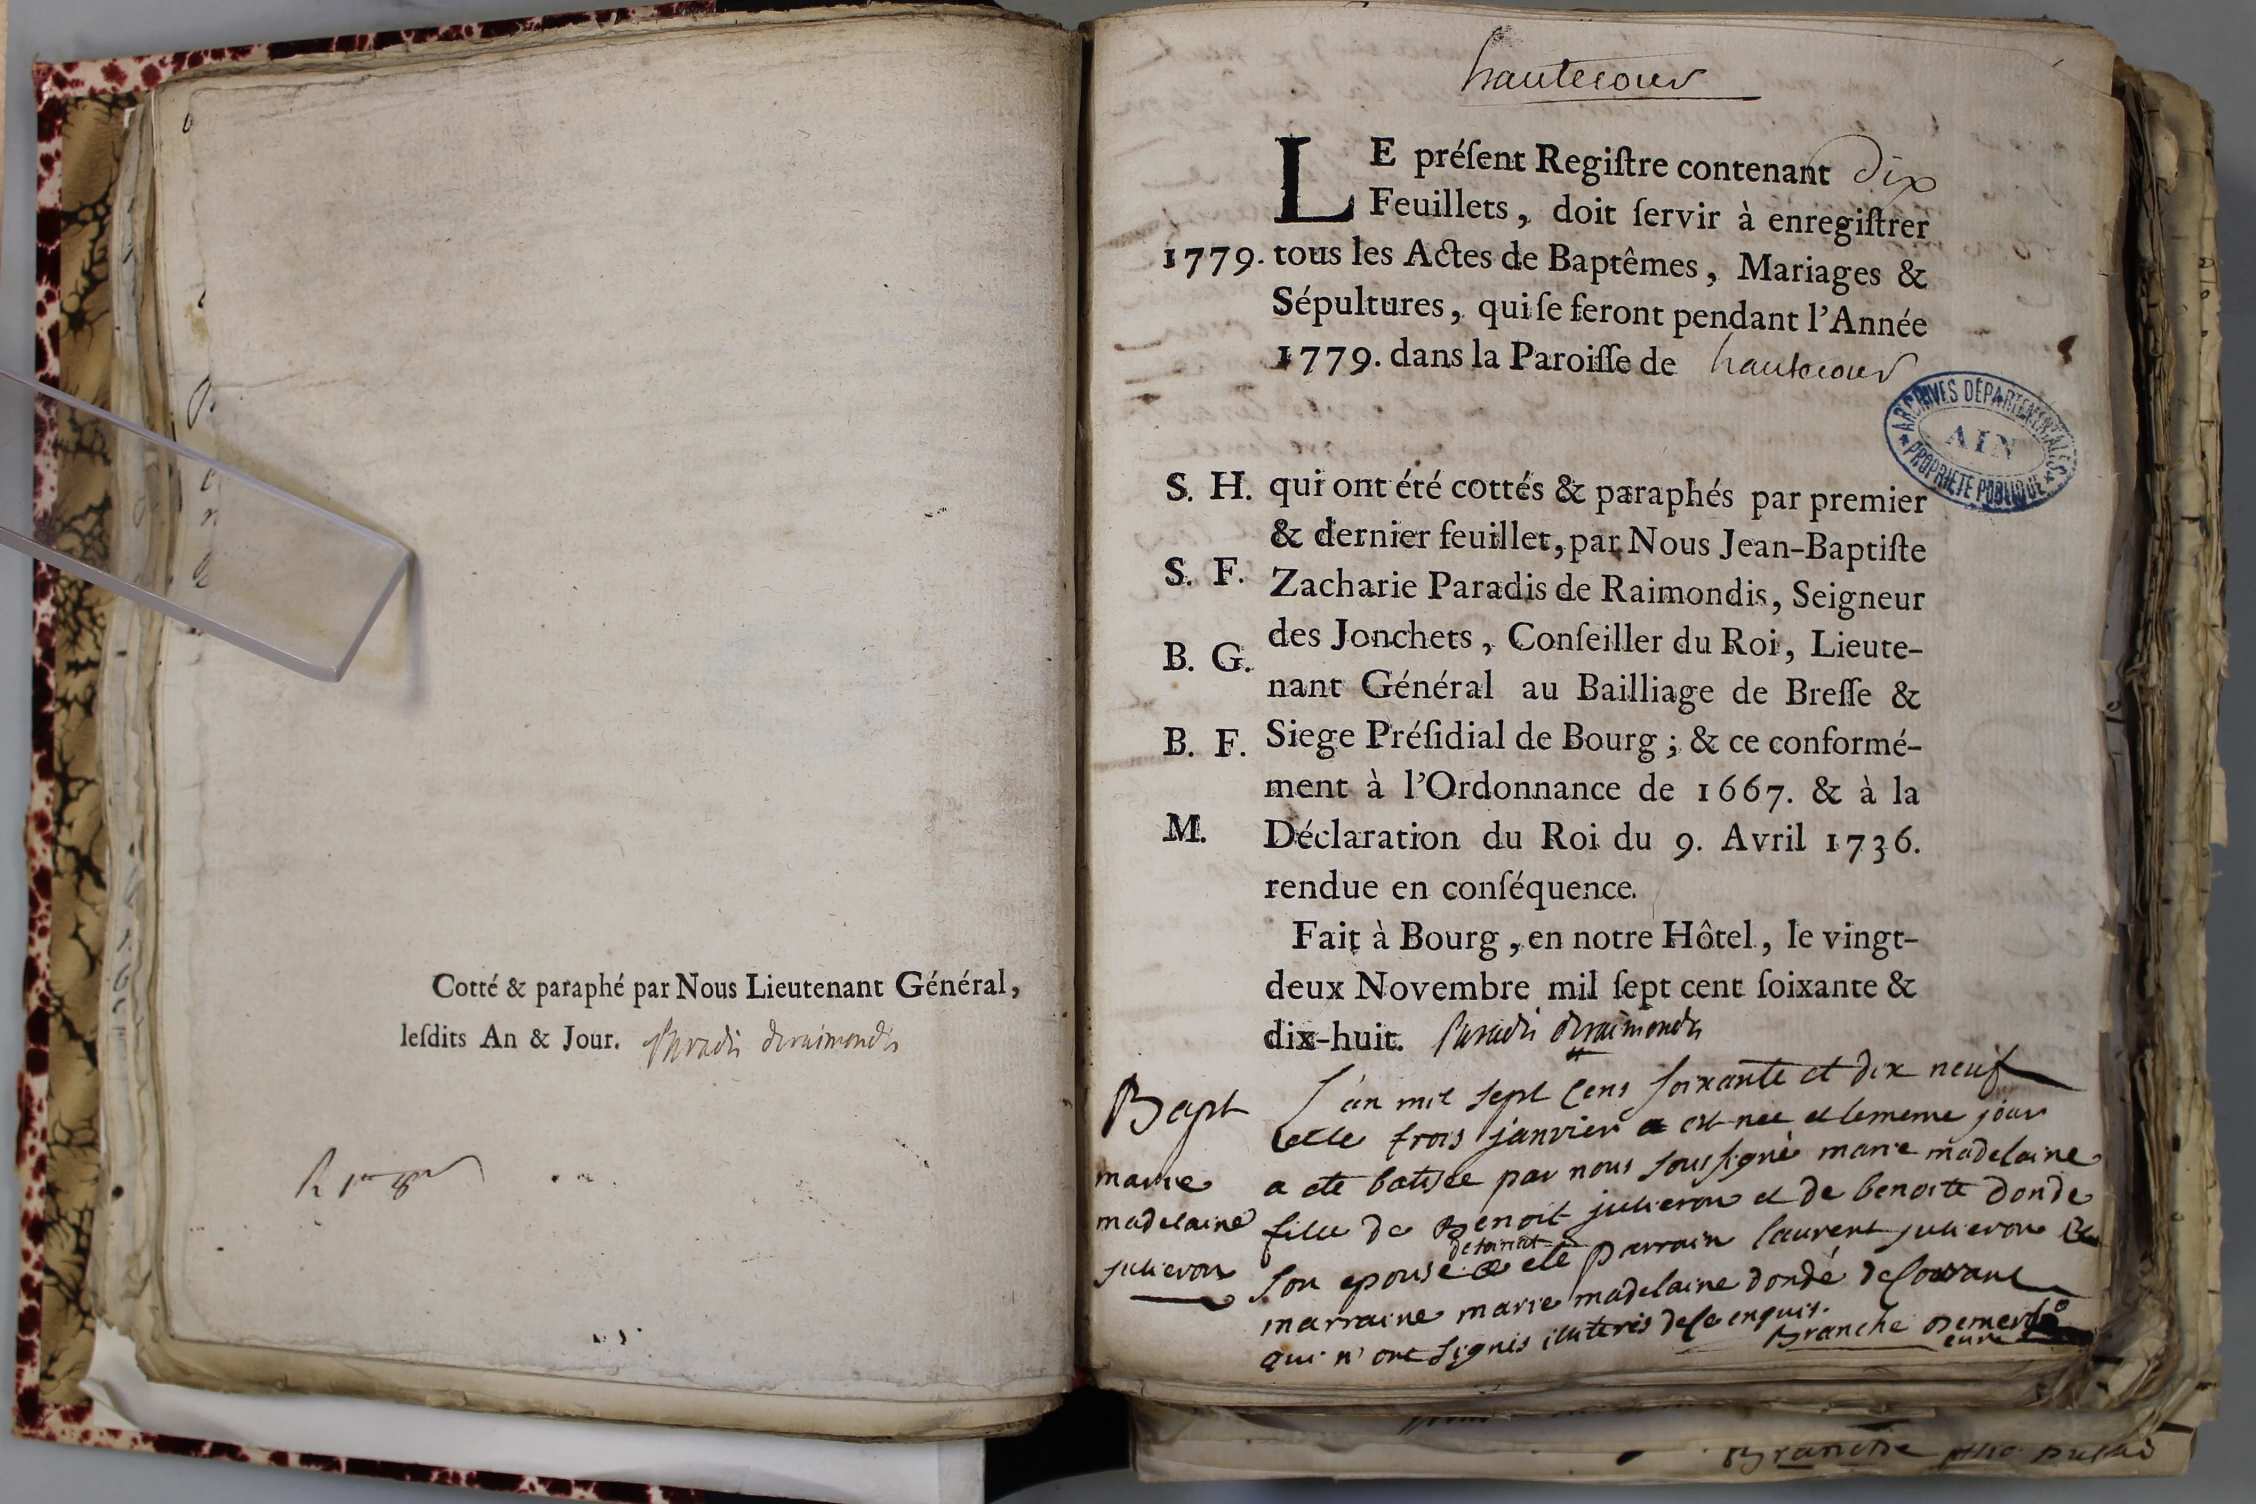 Cotté & paraphé par Nous Lieutenant Général,
leſdits An & Jour. Paradis deraimondis
hautecour
LE préſent Regiſtre contenant dix
Feuillets, doit ſervir à enregiſtrer
1779. tous les Actes de Baptêmes, Mariages &
Sépultures, qui ſe feront pendant l'Année
1779. dans la Paroiſſe de hautecour
ARCHIVES DÉPARTEMENTALES
AIN
PROPRIETE PUBLIQUE
S. H. qui ont été cottés & paraphés par premier
& dernier feuillet, par Nous Jean-Baptiſte
S. F. Zacharie Paradis de Raimondis, Seigneur
des Jonchets, Conſeiller du Roi, Lieute-
B. G. nant Général au Bailliage de Breſſe &
B. F. Siege Préſidial de Bourg ; & ce conformé-
ment à l'Ordonnance de 1667. & à la
M. Déclaration du Roi du 9. Avril 1736.
rendue en conſéquence.
Fait à Bourg, en notre Hôtel, le vingt-
deux Novembre mil ſept cent ſoixante &
dix-huit. Paradis deraimondis
Bapt
marie
madelaine
julieron
L'an mil sept cens soixante et dix neuf
et le trois janvier est nee et lememe jour
a eté batisée par nous soussigné marie madelaine
fille de Benoit julieron et de benoite donde
son epouse a eté parrain laurent julieron &
marraine marie madelaine donde
qui n'ont signés illiterés de ce enquis.
Branche
curé
Branche